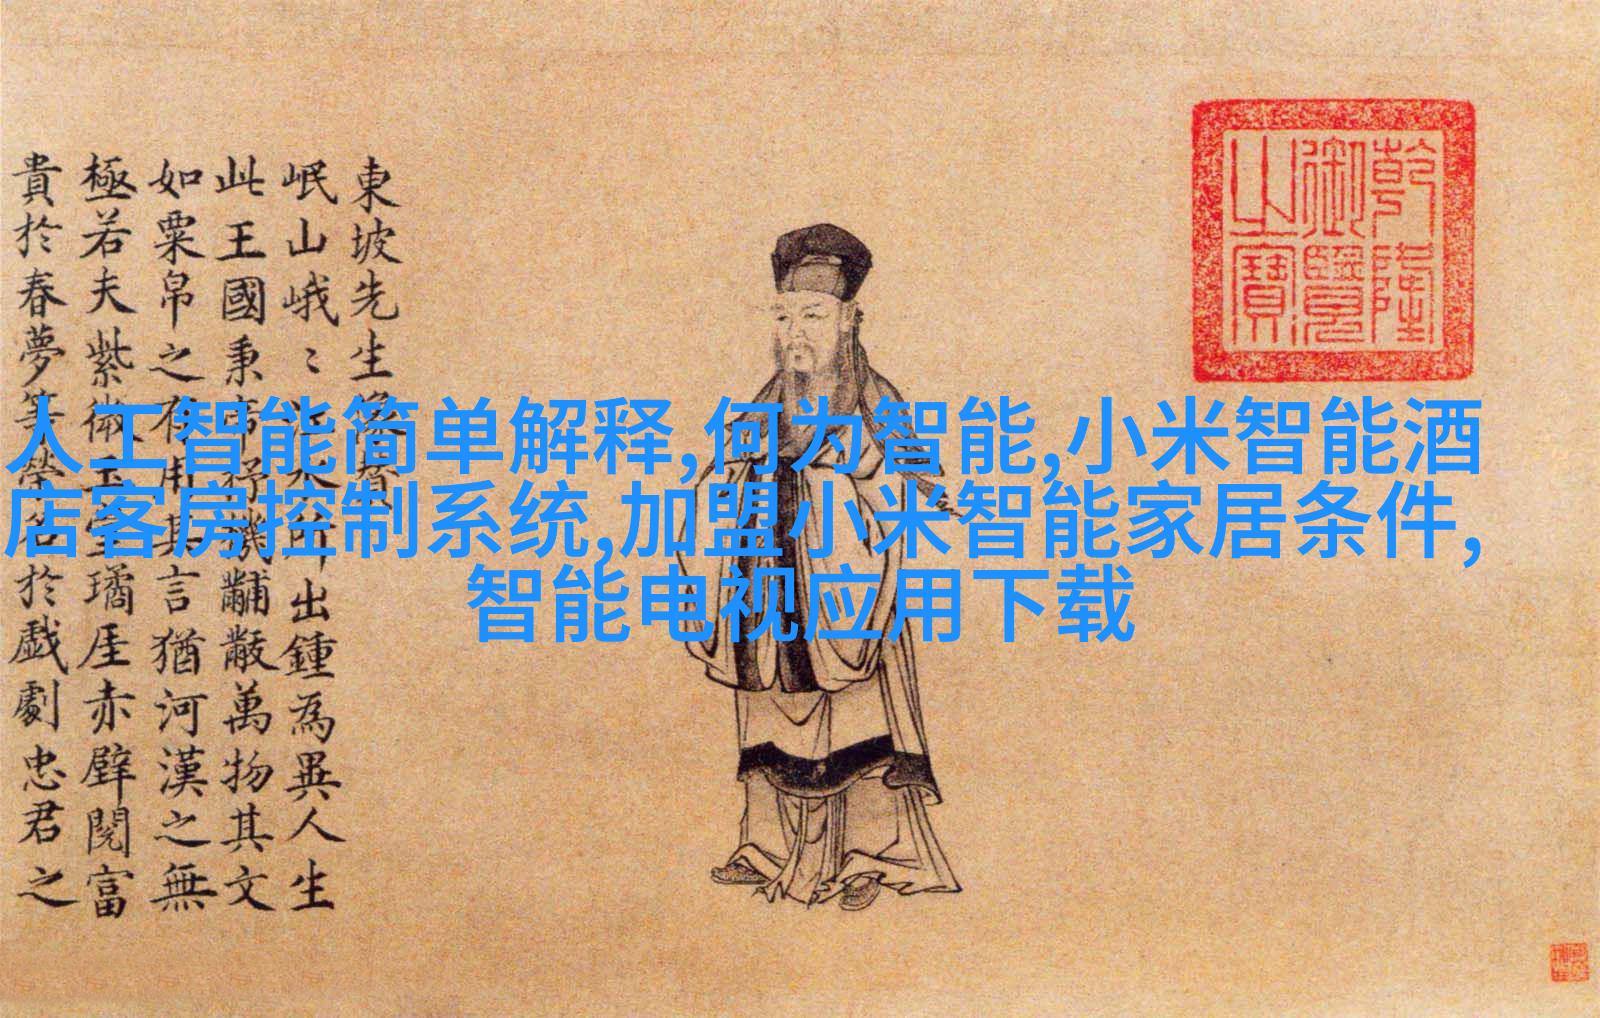 東坡先生像贊
岷山峨〻江水所出鍾為異人生
此王國秉帝杼機黼黻萬物其文
如粟帛之有用其言猶河漢之無
極若夫紫微玉堂璚厓赤壁閱富
貴於春夢等榮名於戲劇忠君之
乾隆
御覽
之寶
人工智能简单解释,何为智能,小米智能酒
店客房控制系统,加盟小米智能家居条件,
智能电视应用下载